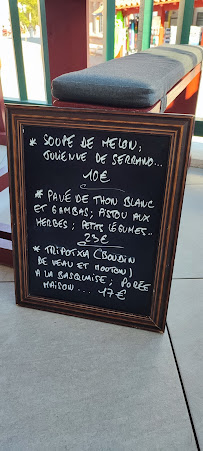 * SOUPE DE MELON;
JULIENNE DE SERRANO...
10€
* PAVÉ DE THON BLANC
ET GAMBAS; PISTOU AUX
HERBES; PETITS LÉGUMES..
23€
* TRIPOTXA (BOUDIN
DE VEAU ET MOUTON)
A LA BASQUAISE; PURÉE
MAISON... 17€